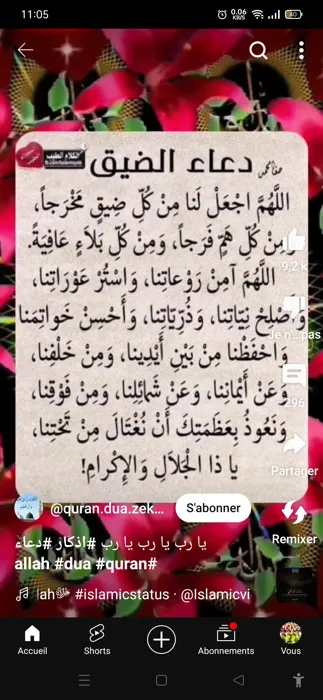 11:05
0.06
KB/S
دعاء الضيق
الكلام الطيب
اللَّهُمَّ اجْعَلْ لَنا مِنْ كُلِّ ضِيقٍ مَخْرَجاً،
وَمِنْ كُلِّ هَمٍّ فَرَجاً، وَمِنْ كُلِّ بَلاءٍ عَافِيَةً.
اللَّهُمَّ آمِنْ رَوْعاتِنا، وَاسْتُرْ عَوْرَاتِنا،
وَصْلِحْ نِيّاتِنا، وَذُرِّيّاتِنا، وَأَحْسِنْ خَواتِمَنا
وَاحْفَظْنا مِنْ بَيْنِ أَيْدِينا، وَمِنْ خَلْفِنا،
وَعَنْ أَيْمَانِنا، وَعَنْ شَمائِلِنا، وَمِنْ فَوْقِنا،
وَنَعُوذُ بِعَظَمَتِكَ أَنْ نُغْتَالَ مِنْ تَحْتِنا،
يا ذا الْجَلالِ وَالإِكْرامِ!
9,2 k
Je n'...pas
296
Partager
Remixer
@quran.dua.zek...
S'abonner
يا رب يا رب يا رب #اذكار #دعاء
allah #dua #quran#
ah #islamicstatus · @Islamicvi
Accueil
Shorts
Abonnements
Vous